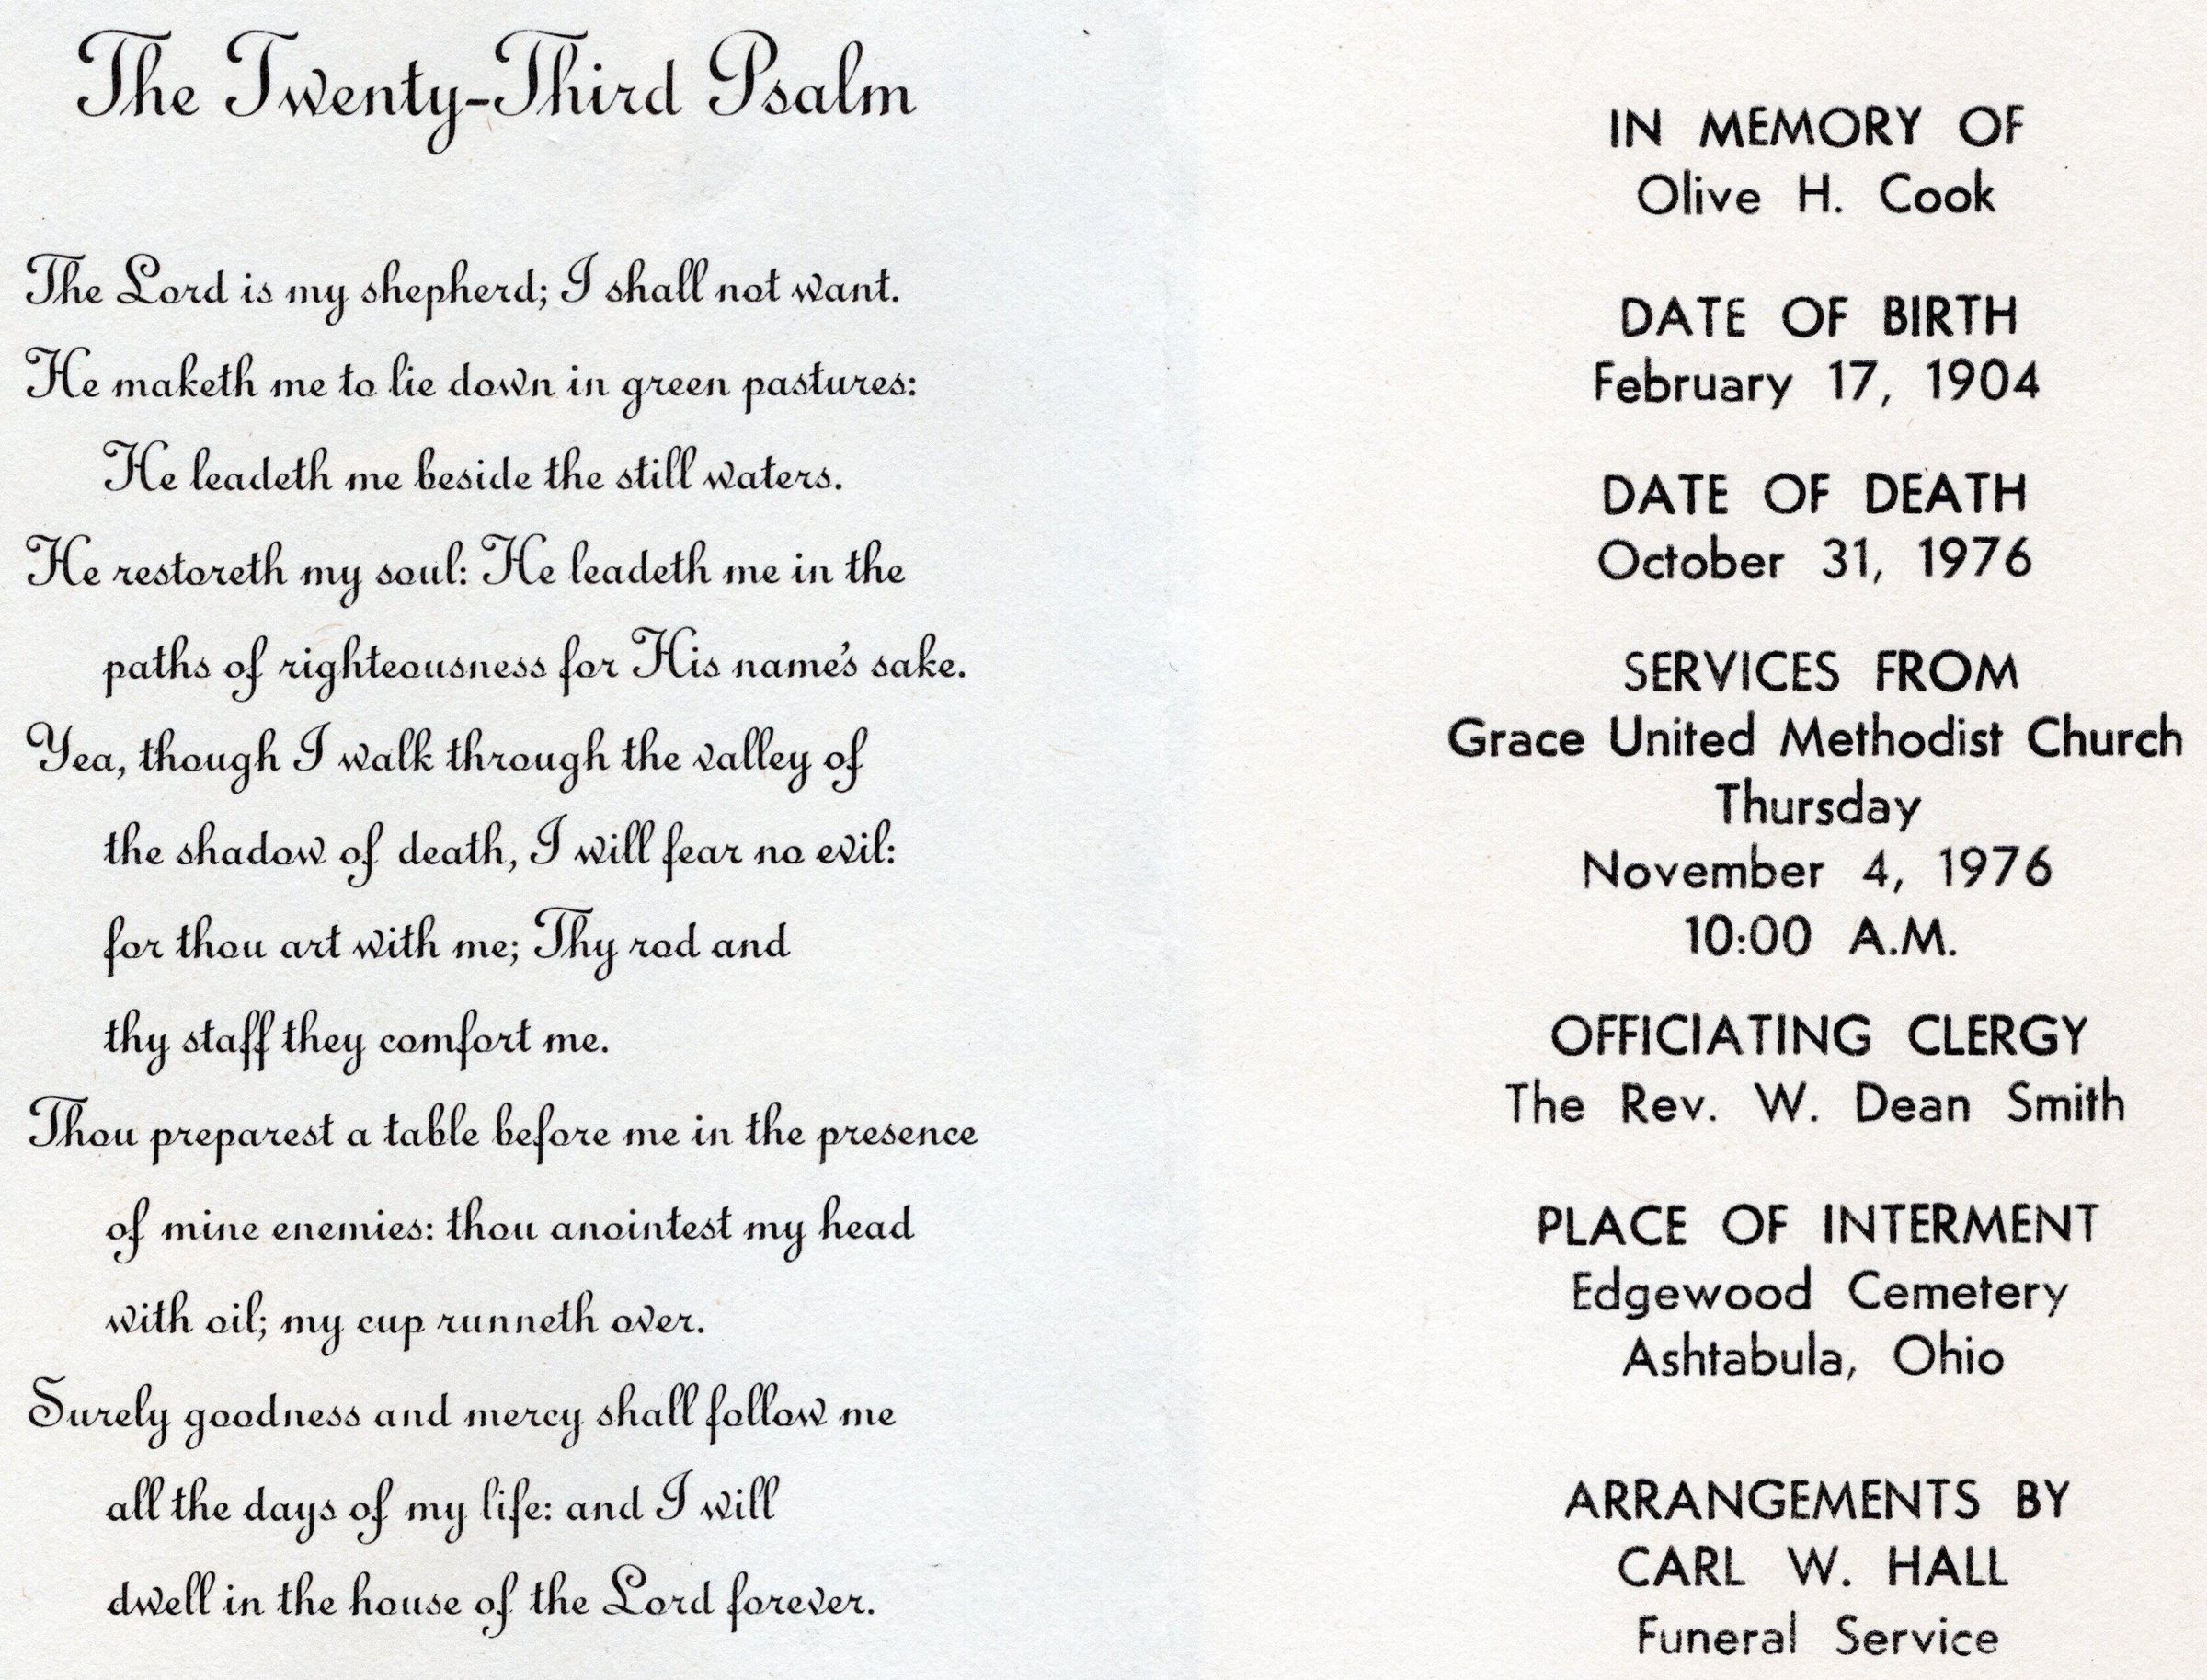 The Twenty-Third Psalm
The Lord is my shepherd; I shall not want.
He maketh me to lie down in green pastures:
He leadeth me beside the still waters.
He restoreth my soul: He leadeth me in the
paths of righteousness for His name's sake.
Yea, though I walk through the valley of
the shadow of death, I will fear no evil:
for thou art with me; Thy rod and
thy staff they comfort me.
Thou preparest a table before me in the presence
of mine enemies: thou anointest my head
with oil; my cup runneth over.
Surely goodness and mercy shall follow me
all the days of my life: and I will
dwell in the house of the Lord forever.
IN MEMORY OF
Olive H. Cook
DATE OF BIRTH
February 17, 1904
DATE OF DEATH
October 31, 1976
SERVICES FROM
Grace United Methodist Church
Thursday
November 4, 1976
10:00 A.M.
OFFICIATING CLERGY
The Rev. W. Dean Smith
PLACE OF INTERMENT
Edgewood Cemetery
Ashtabula, Ohio
ARRANGEMENTS BY
CARL W. HALL
Funeral Service